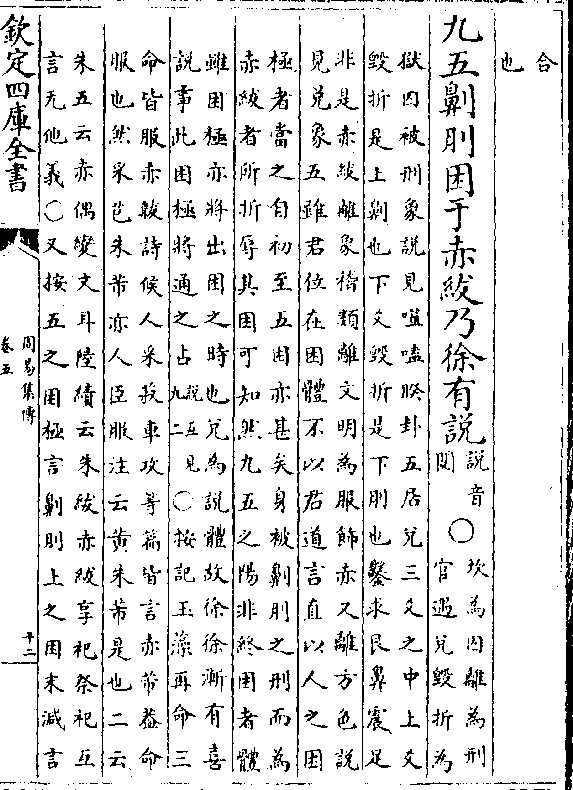 合
也
九五劓刖困于赤紱乃徐有説
説音
閱
○
坎為囚離為刑
官過兑毀折為
獄囚被刑象説見噬嗑睽卦五居兑三爻之中上爻
毀折是上劓也下爻毀折是下刖也鑿求艮鼻震足
非是赤紱離象禇類離文明為服飾赤又離方色説
見兑象五雖君位在困體不以君道言直以人之困
極者當之自初至五困亦甚矣身被劓刖之刑而為
赤紱者所折辱其困可知然九五之陽非終困者體
雖困極亦將出困之時也兑為説體故徐徐漸有喜
説事此困極將通之占説互見九二○按記玉藻再命三
命皆服赤韍詩候人采菽車攻等篇皆言赤芾葢命
服也然采芑朱芾亦人臣服注云黄朱芾是也二云
朱五云赤偶變文耳陸績云朱紱赤紱享祀祭祀互
言无他義○又按五之困極言劓刖上之困末減言
欽定四庫全書
周易集傳
卷五
十二